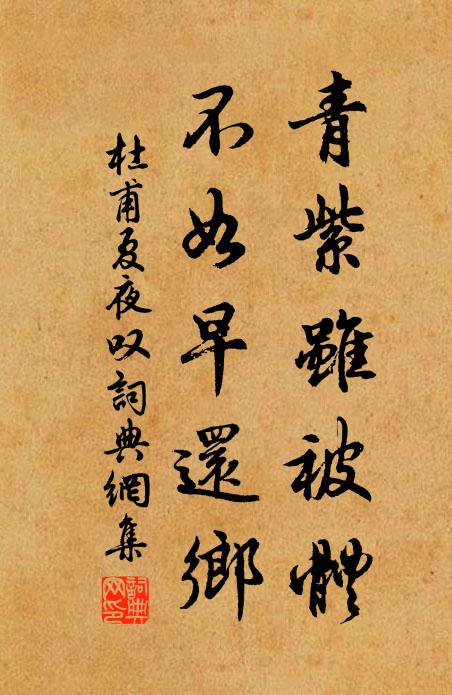 青紫雖被體
不如早還鄉
杜甫夏夜叹詞典網集
詞典
网印